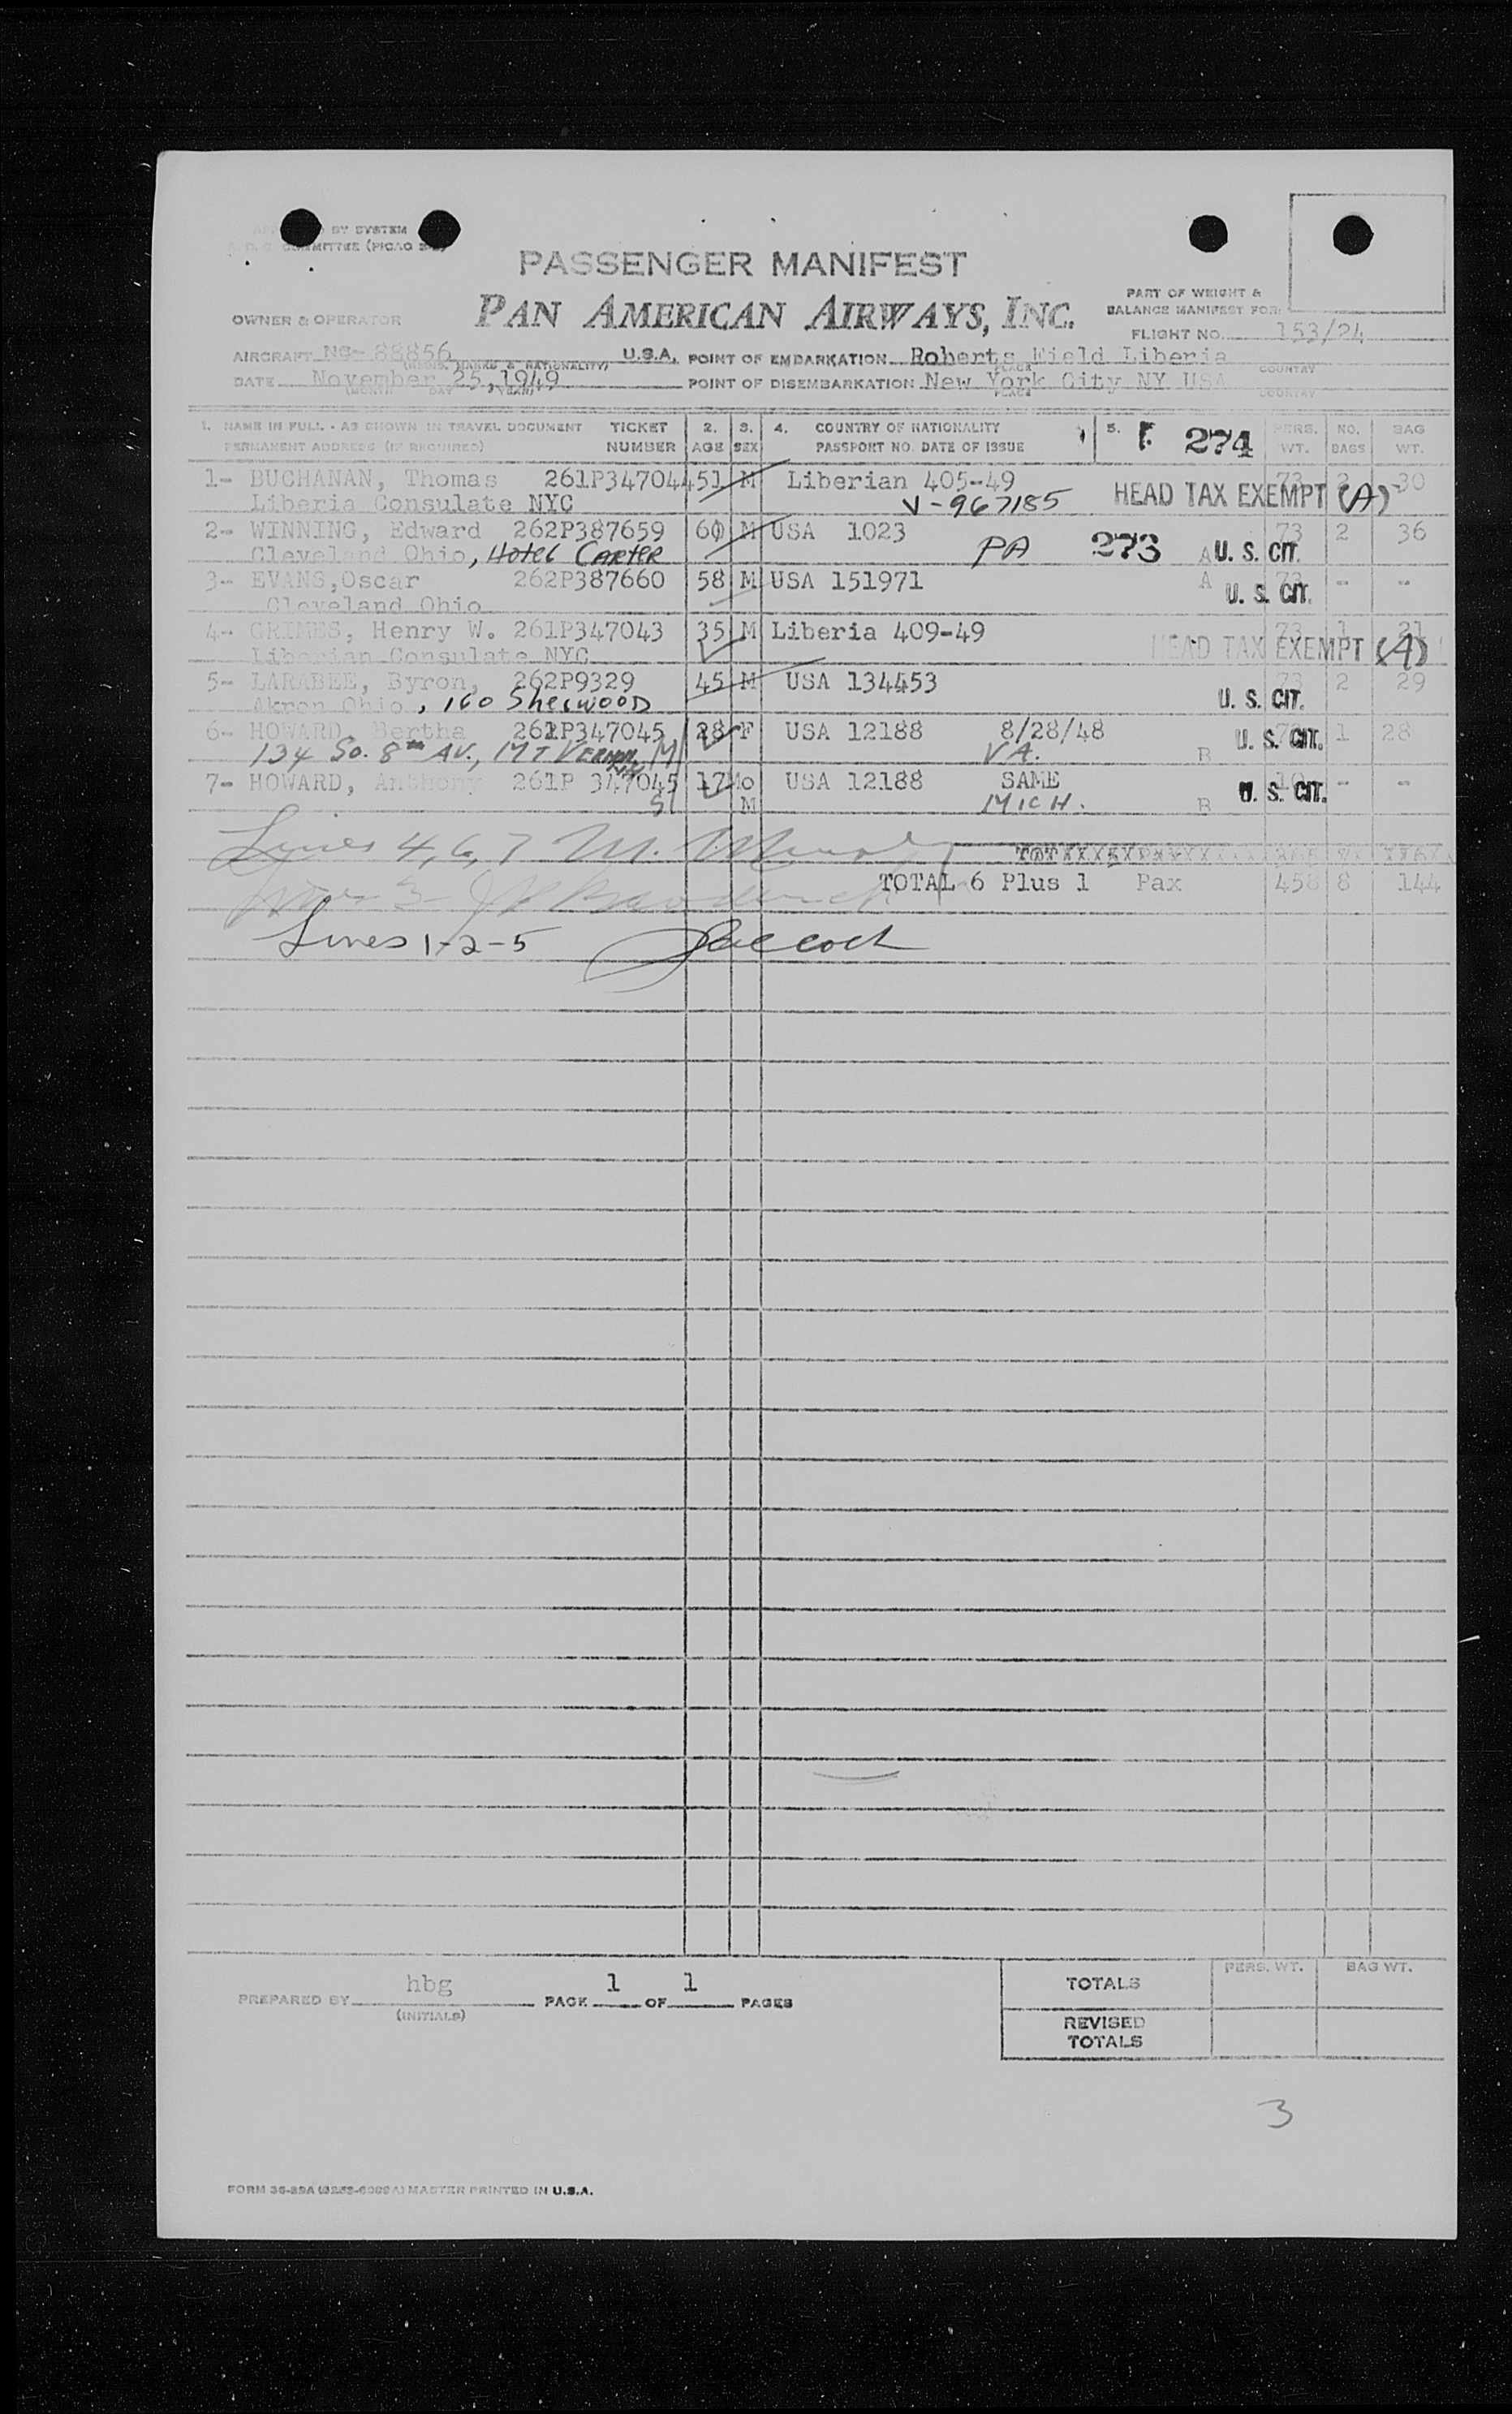 BY SYSTEM
COMMITTEE (PICAO
PASSENGER MANIFEST
PAN AMERICAN AIRWAYS, INC.
PART OF WEIGHT &
BALANCE MANIFEST FOR:
OWNER & OPERATOR
FLIGHT NO. 153/24
AIRCRAFT NC-88856 U.S.A. POINT OF EMBARKATION Roberts Field Liberia
(REGIS. MARKS & NATIONALITY) PLACE COUNTRY
DATE November 25, 1949 POINT OF DISEMBARKATION New York City NY US
(MONTH DAY YEAR) PLACE COUNTRY
1. NAME IN FULL - AS SHOWN IN TRAVEL DOCUMENT TICKET 2. 3. 4. COUNTRY OF NATIONALITY 5. 274 PERS. NO. BAG
PERMANENT ADDRESS (IF REQUIRED) NUMBER AGE SEX PASSPORT NO. DATE OF ISSUE WT. BAGS WT.
1- BUCHANAN, Thomas 261P347044 51 M Liberian 405-49 73 2 30
Liberia Consulate NYC V-967185 HEAD TAX EXEMPT (A)
2- WINNING, Edward 262P387659 60 M USA 1023 73 2 36
Cleveland Ohio, Hotel Carter PA 273 A U. S. CIT.
3- EVANS,Oscar 262P387660 58 M USA 151971 A 73 - --
Cleveland Ohio U. S. CIT.
4- GRIMES, Henry W. 261P347043 35 M Liberia 409-49 73 1 21
Liberian Consulate NYC HEAD TAX EXEMPT (A)
5- LARABEE, Byron, 262P9329 45 M USA 134453 73 2 29
Akron Ohio, 160 Sherwood U. S. CIT.
6- HOWARD, Bertha 261P347045 28 F USA 12188 8/28/48 73 1 28
134 So. 8th Av., Mt Vernon, NY M VA. B U. S. CIT.
7- HOWARD, Anthony 261P 347045 17 Mo USA 12188 SAME 10 - -
S M MICH. B U. S. CIT.
Lines 4, 6, 7 M.
TOTAL 6 Plus 1 Pax 458 8 144
Lines 1-2-5
hbg 1 1
PREPARED BY PAGE OF PAGES
(INITIALS)
PERS. WT. BAG WT.
TOTALS
REVISED
TOTALS
3
MASTER PRINTED IN U.S.A.